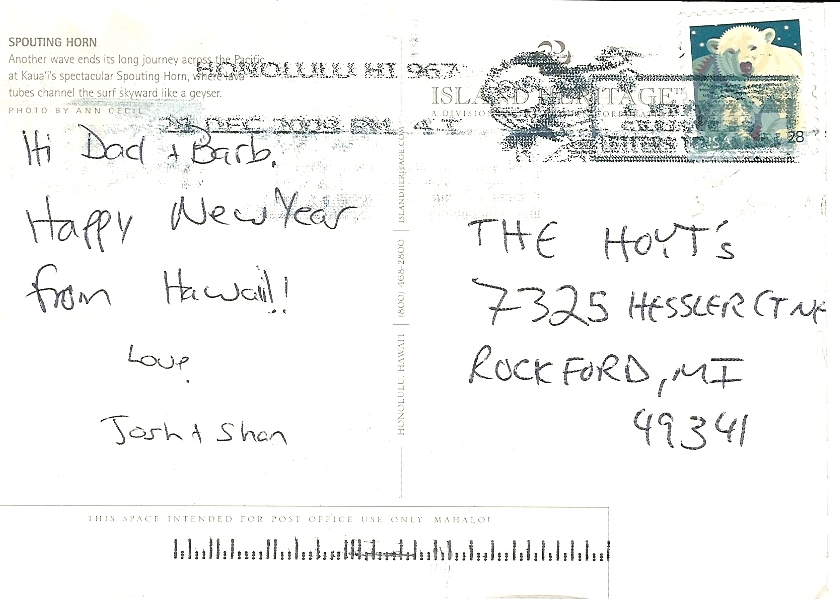 SPOUTING HORN
Another wave ends its long journey across the Pacific
at Kaua'i's spectacular Spouting Horn, where lava
tubes channel the surf skyward like a geyser.
PHOTO BY ANN CECIL
HONOLULU HI 967
DEC 2009 PM 4 T
Hi Dad + Barb.
Happy New Year
from Hawaii!!
Love,
Josh + Shan
HONOLULU, HAWAII | (800) 468-2800 | ISLANDHERITAGE.COM
ISLAND HERITAGE
A DIVISION
28
USA
THE HOYT's
7325 HESSLER CT NE
ROCKFORD, MI
49341
THIS SPACE INTENDED FOR POST OFFICE USE ONLY. MAHALO!